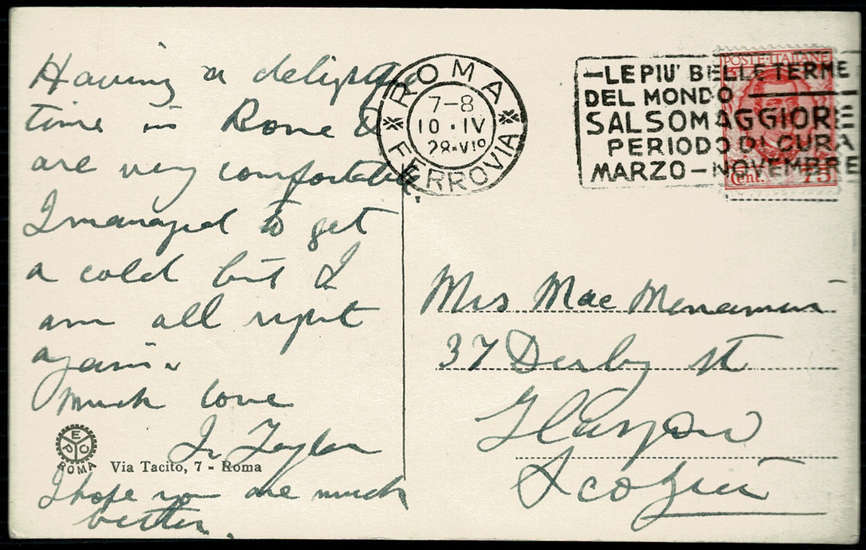 Having a delightful
time in Rome &
are very comfortable.
I managed to get
a cold but I
am all right
again.
Much love
Taylor
I hope you are much
better.
EPOC
ROMA
Via Tacito, 7 - Roma
ROMA
7-8
10 • IV
28•VIº
FERROVIA
—LE PIU' BELLE TERME
DEL MONDO
SALSOMAGGIORE
PERIODO DI CURA
MARZO – NOVEMBRE
POSTE ITALIANE
Cent. 75
Mrs Mac Menamin
37 Derby st
Glasgow